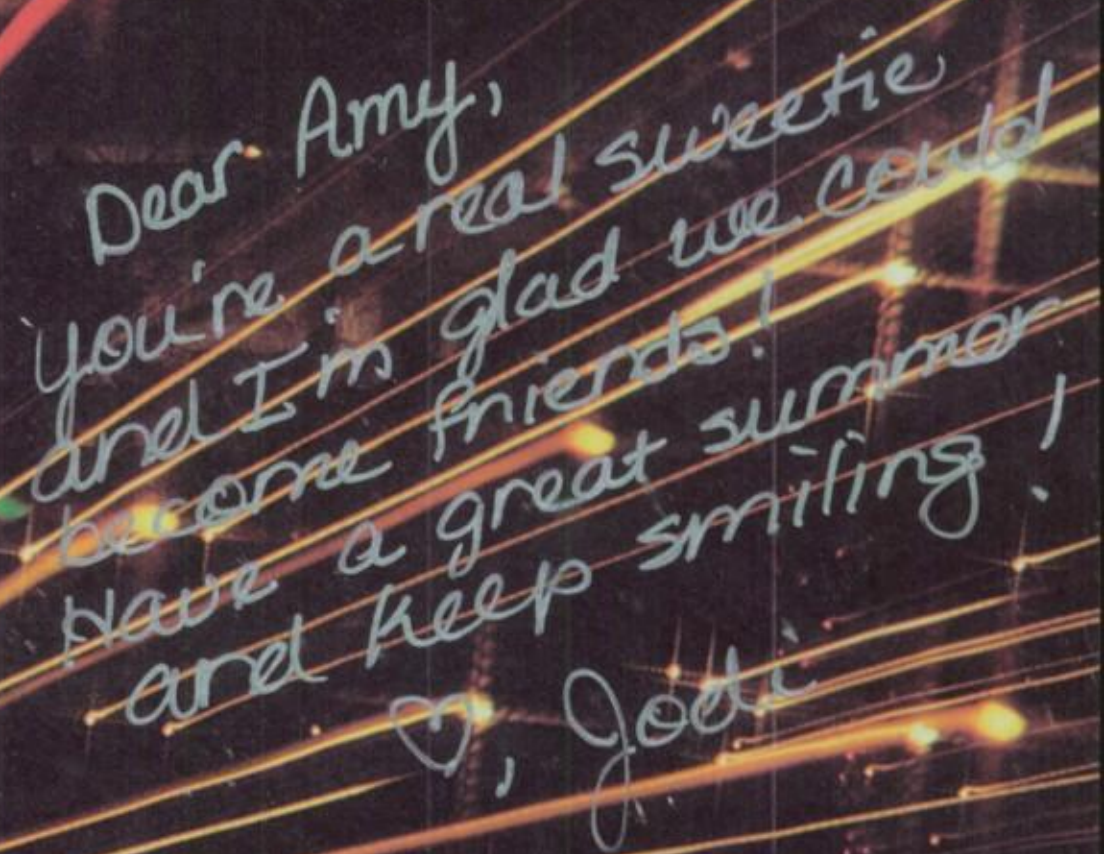 Dear Amy,
you're a real sweetie
and I'm glad we could
become friends!
Have a great summer
and keep smiling!
♡, Jodi